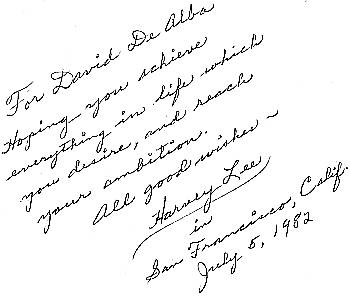 For David De Alba
Hoping you achieve
everything in life which
you desire, and reach
your ambition.
All good wishes ~
Harvey Lee
in
San Francisco, Calif.
July 5, 1982